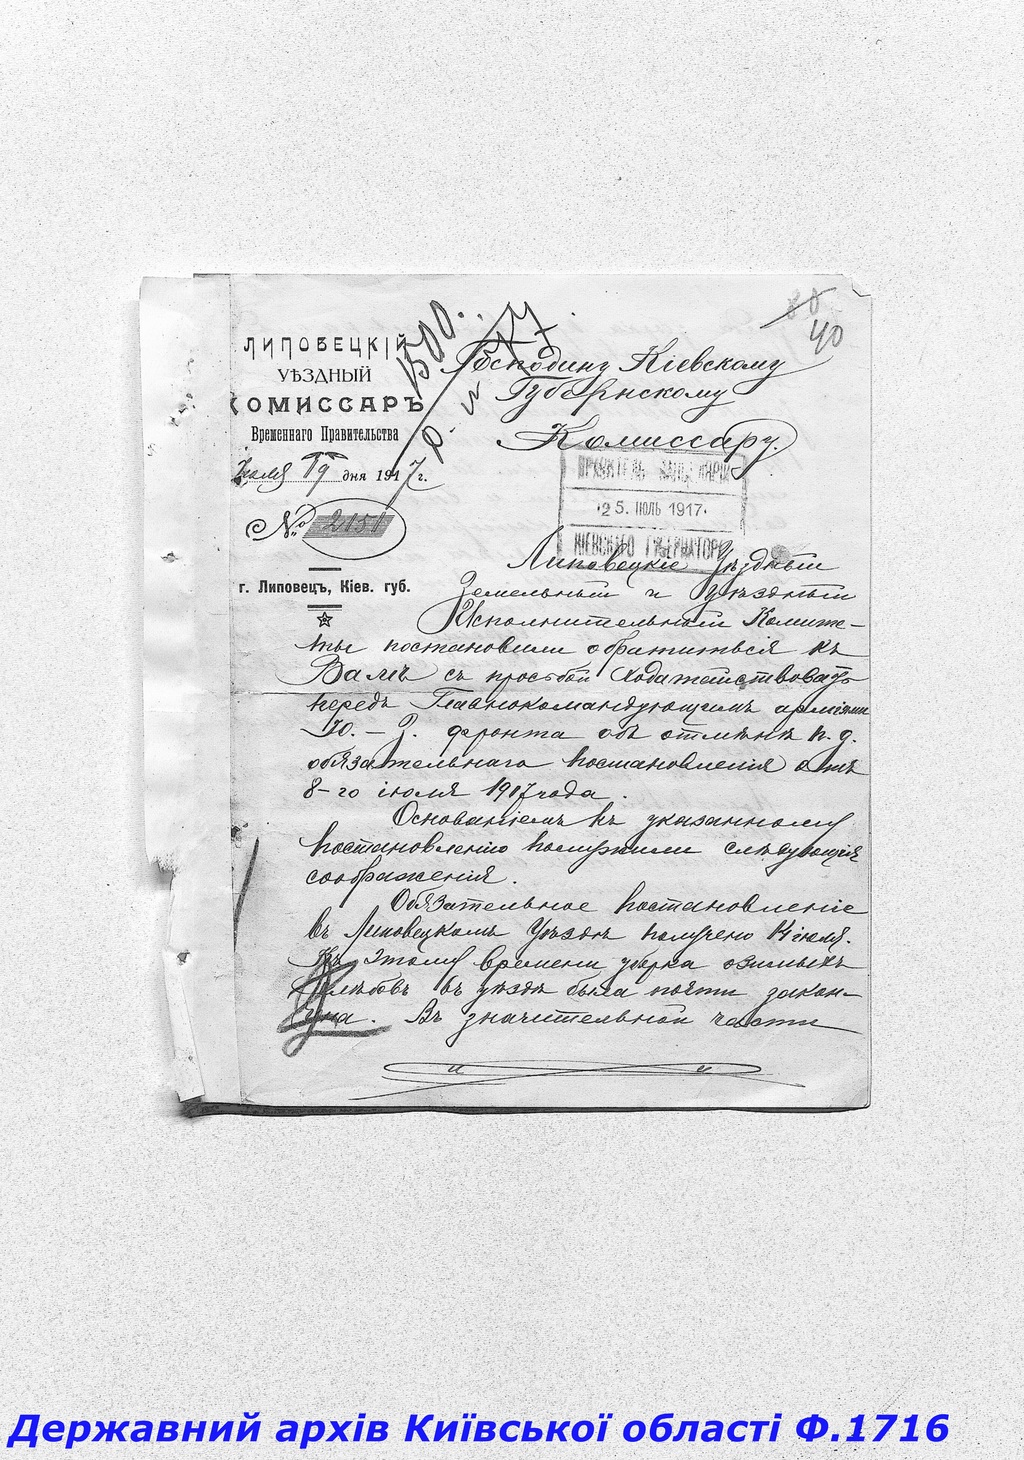 80
40
1500.
ЛИПОВЕЦКІЙ
УѢЗДНЫЙ
КОМИССАРЪ
Временнаго Правительства
Іюля 19 дня 1917 г.
№ 2151
г. Липовецъ, Кіев. губ.
Господину Кіевскому
Губернскому
Комиссару.
ПРАВИТЕЛЬ КАНЦЕЛЯРІИ
25. ІЮЛЬ 1917
КІЕВСКАГО ГУБЕРНАТОРА
Липовецкіе Уѣздный
Земельный и Уѣздный
Исполнительный Комите-
ты постановили обратиться къ
Вамъ съ просьбой ходатайствовать
передъ Главнокомандующимъ арміями
Ю.-З. фронта объ отмѣнѣ п. д.
обязательнаго постановленія отъ
8-го іюля 1917 года.
Основаніемъ къ указанному
постановленію послужили слѣдующія
соображенія.
Обязательное постановленіе
въ Липовецкомъ Уѣздѣ получено 14 іюля.
Къ этому времени уборка озимыхъ
хлѣбовъ въ уѣздѣ была почти закон-
чена. Въ значительной части
Державний архів Київської області Ф.1716